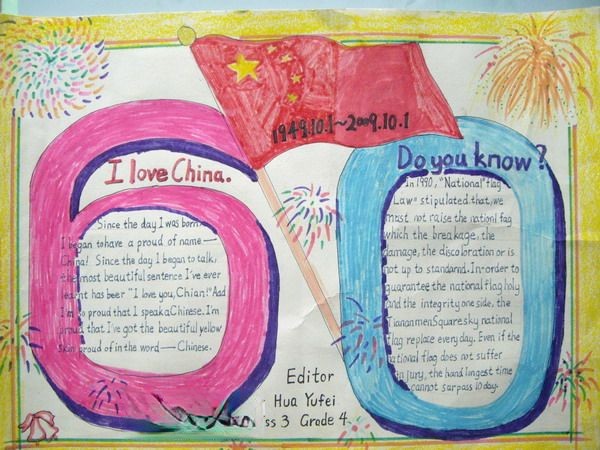 1949.10.1~2009.10.1
I love China.
Since the day I was born
I began to have a proud of name —
China! Since the day I began to talk,
the most beautiful sentence I've ever
learnt has beer "I love you, Chian!" And
I'm so proud that I speak a Chinese. I'm
proud that I've got the beautiful yellow
skin proud of in the word — Chinese.
Do you know?
In 1990, "National" flag
Law" stipulated that, we
must not raise the nationl fag
which the breakage, the
damage, the discoloration or is
not up to standarnd. In order to
quarantee the national flag holy
and the integrity one side, the
Tiananmen Square sky national
flag replace every day. Even if the
national flag does not suffer
injury, the hand lingest time
cannot surpass 10 day.
Editor
Hua Yufei
ss 3 Grade 4